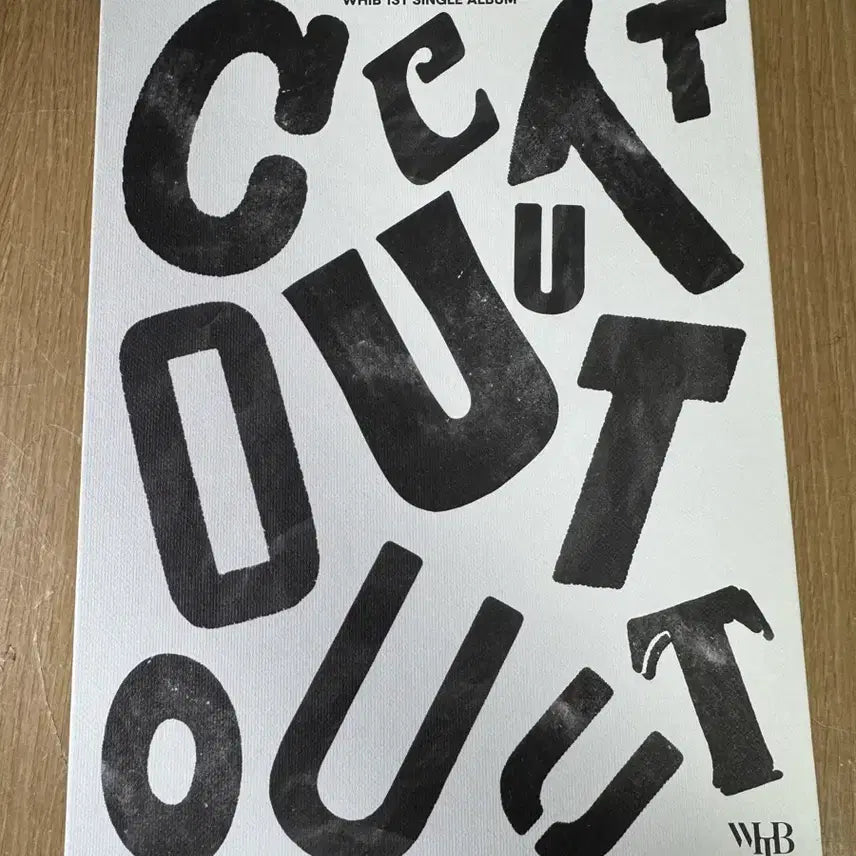 WHIB 1ST SINGLE ALBUM
C C T T
U U
O T
O U U T
WHIB